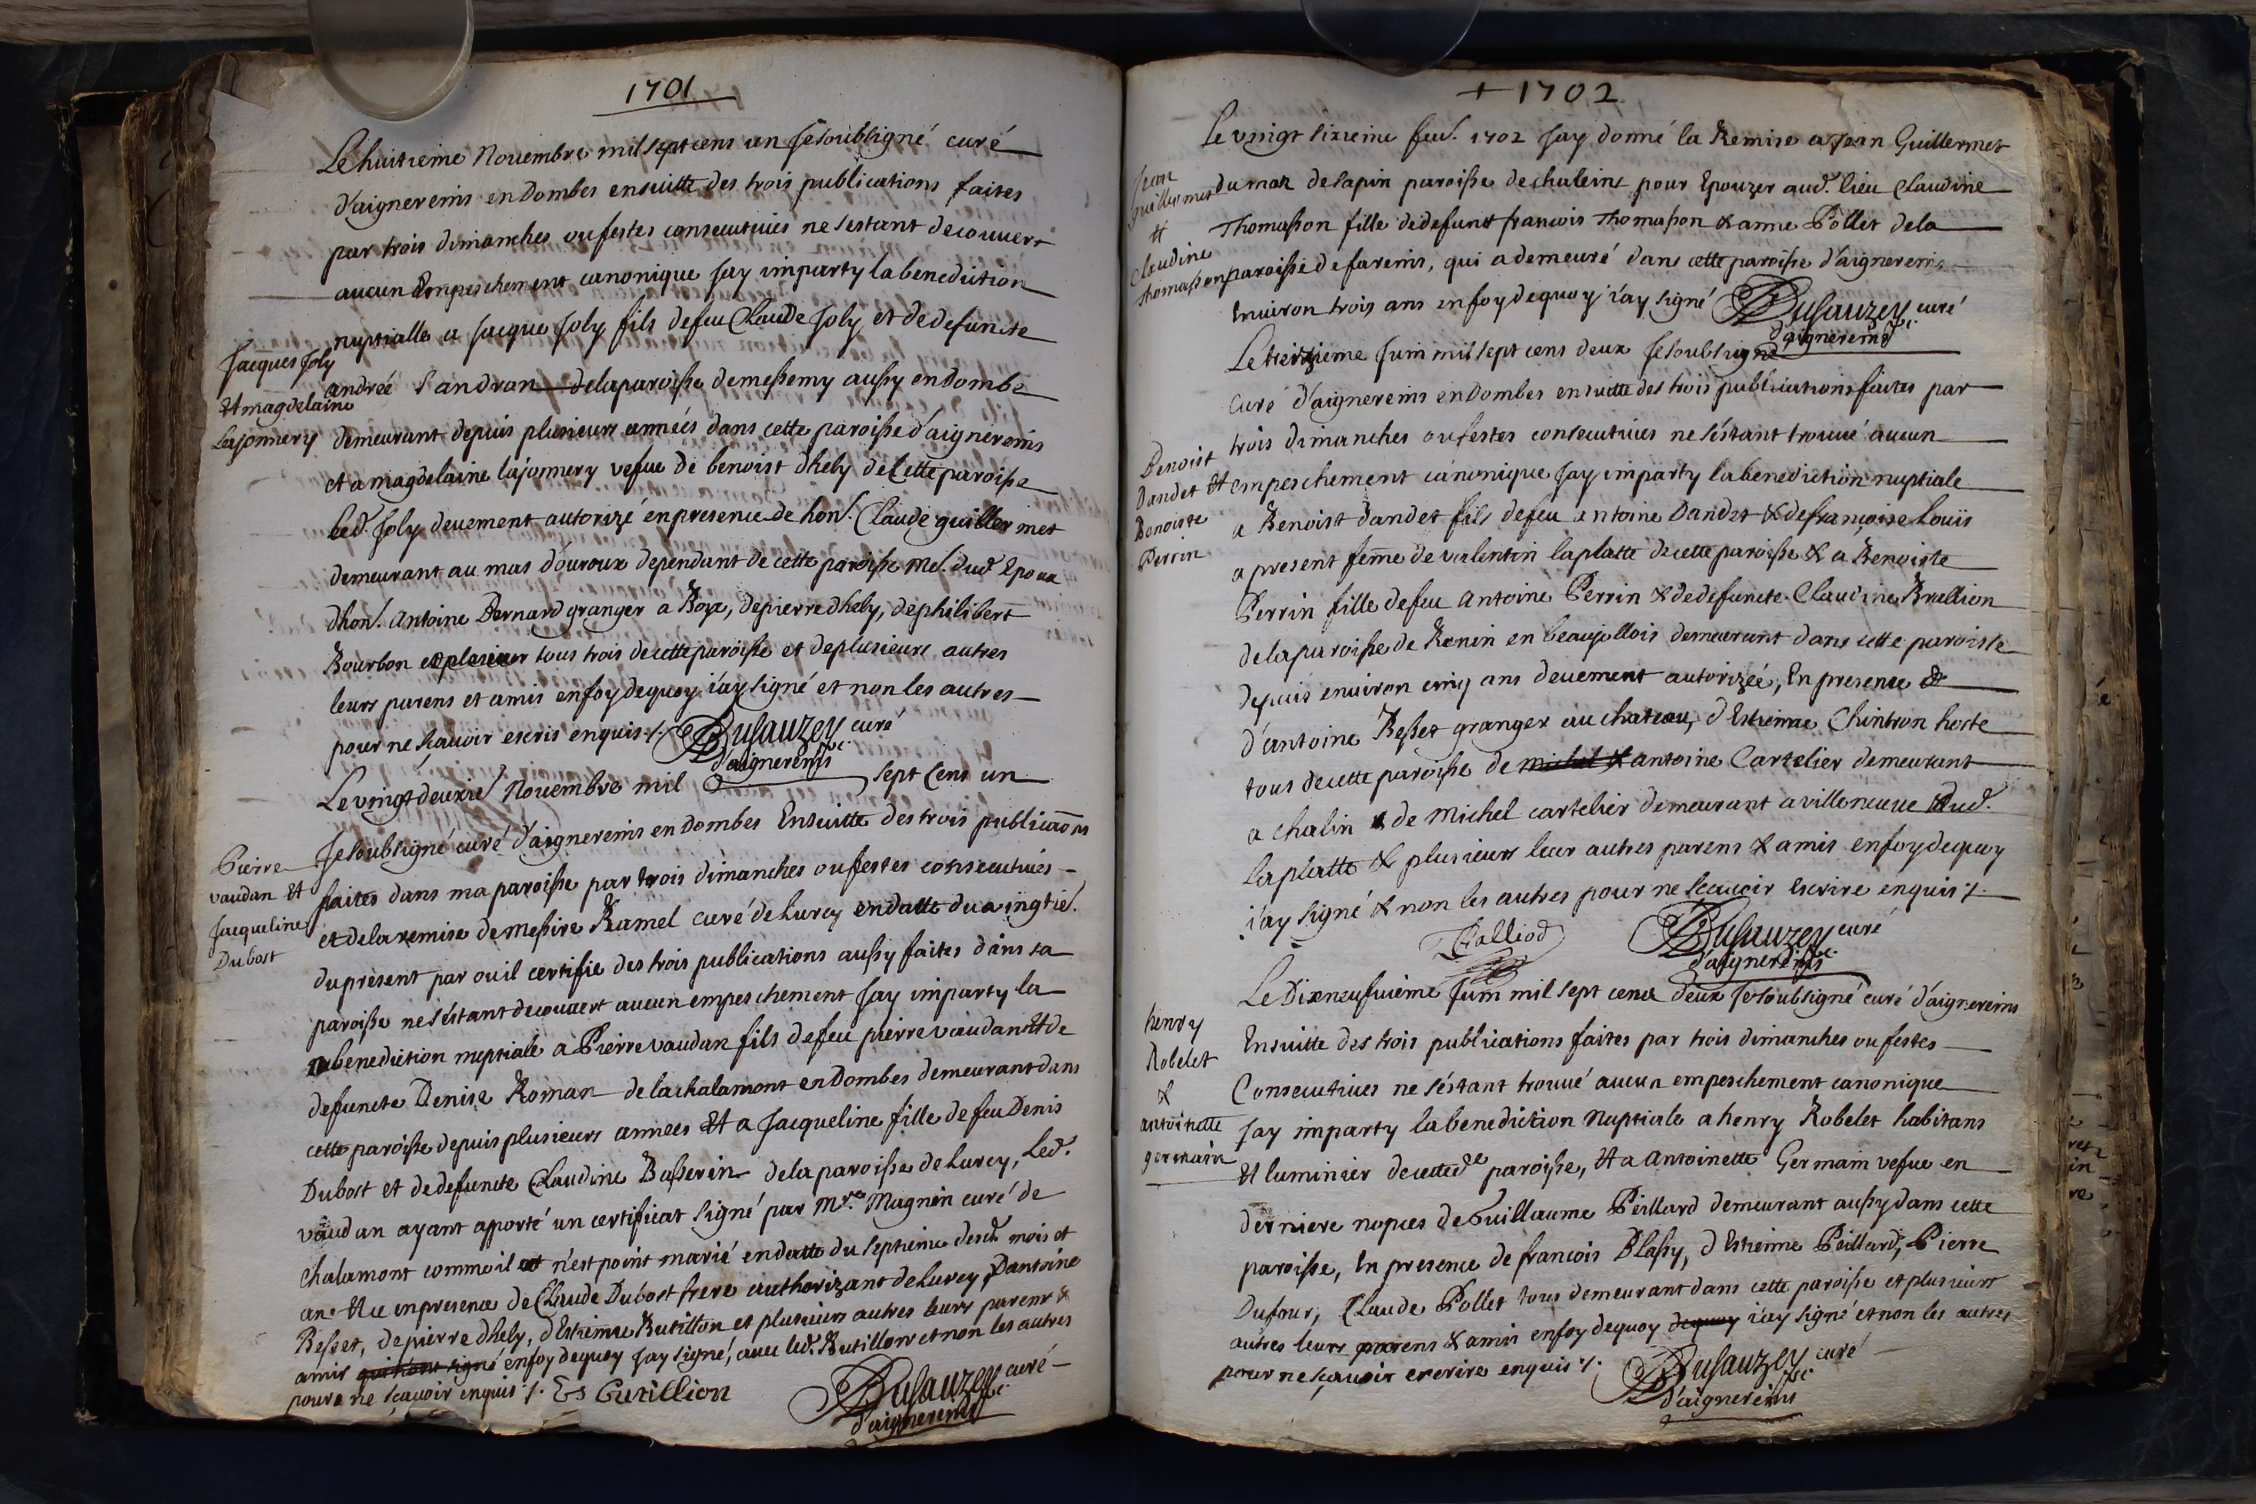 1701
Le huitieme Novembre mil sept cens un Je soubsigné curé
d'aignereins en Dombes ensuitte des trois publications faites
par trois dimanches ou festes consecutives ne s'estant decouvert
aucun Empeschement canonique Jay imparty la benediction
nuptialle a Jacque Joly fils de feu Claude Joly et de defuncte
Jacques Joly
Et magdelaine
Lajonnery
andrée Sandran de la paroisse de messemy aussy en Dombe
demeurant depuis plusieurs années dans cette paroisse d'aignereins
et a magdelaine lajonnery vefue de benoist dhely de Cette paroisse
led. Joly deuement autorizé en presence de hon. Claude guillermet
demeurant au mas d'ouroux dependant de cette paroisse Me. dud Epoux
d'hon. Antoine Bernard granger a Boye, de pierre dhely, de philibert
Bourbon et plusieur tous trois de cette paroisse et de plusieurs autres
leurs parens et amis en foy dequoy i'ay signé et non les autres
pour ne scauoir escris enquis ./.
Dusauzey curé
d'aignereins
Le vingt deuxie Novembre mil sept Cens un
Pierre
vaudan Et
Jacqueline
Dubost
Je soubsigné curé d'aignereins en Dombes Ensuitte des trois publicaons
faites dans ma paroisse par trois dimanches ou festes consecutiues
et de la remise de Messire Ramel curé de Lurcy en datte du vingtie.
du present par ou il certifie des trois publications aussy faites dans sa
paroisse ne s'éstant decouuert aucun empeschement Jay imparty la
benediction nuptiale a Pierre vaudan fils de feu pierre vaudan Et de
defuncte Denise Roman de la chalamont en Dombes demeurant dans
cette paroisse depuis plusieurs années Et a Jacqueline fille de feu Denis
Dubost et de defuncte Claudine Basserin de la paroisse de Lurcy, Led.
vaudan ayant apporté un certificat signé par Mre Magnin curé de
Chalamont comme il n'est point marié en datte du septieme desd. mois et
an Et Ce en presence de Claude Dubost frere authorizant de Lurcy D'antoine
Besset, de pierre dhely, d'Estienne Butillon et plusieurs autres leurs parens &
amis qui n'ont signé en foy dequoy Jay signé, auec led. Butillon et non les autres
pour ne scauoir enquis ./. Es Butillion
Dusauzey curé
d'aignereins
+ 1702
Le vingt sixieme feu. 1702 Jay donné la Remise a Jean Guillermet
Jean
guillermet
Et
Claudine
thomasson
du mas de sapin paroisse de chaleins pour Epouzer aud. lieu Claudine
Thomasson fille de defunt francois Thomasson & anne Pollet de la
paroisse de fareins, qui a demeuré dans cette paroisse d'aignereins
Enuiron trois ans en foy dequoy i'ay signé
Dusauzey curé
d'aignereins
Le treizieme Juin mil sept cens deux Je soubsigné
curé d'aignereins en Dombes ensuitte des trois publications faites par
trois dimanches ou festes consecutiues ne s'éstant trouué aucun
Benoist
Dandet Et
Benoiste
Perrin
empeschement canonique Jay imparty la benediction nuptiale
a Benoist Dandet fils de feu antoine Dandet & de françoise Louis
a present feme de valentin laplatte de cette paroisse & a Benoiste
Perrin fille de feu Antoine Perrin & de defuncte Claudine Brellion
de la paroisse de Renin en beaujollois demeurant dans cette paroisse
depuis enuiron cinq ans deuement autorizée, En presence
d'antoine Besset granger au chateau, d'Estienne Chintron hoste
tous de cette paroisse de michel & antoine Cartelier demeurant
a chalin & de Michel cartelier demeurant a villeneuue dud.
Laplatte & plusieurs leur autres parens & amis en foy dequoy
i'ay signé & non les autres pour ne scauoir Escrire enquis ./.
Challiod
Dusauzey curé
d'aignereins
Le Dixneufuieme Juin mil sept cens deux Je soubsigné curé d'aignereins
henry
Robelet
&
antoinette
germain
Ensuitte des trois publications faites par trois dimanches ou festes
Consecutiues ne s'éstant trouué aucun empeschement canonique
Jay imparty la benediction Nuptiale a henry Robelet habitans
Et luminier de cetted.e paroisse, Et a Antoinette Germain vefue en
derniere nopces de Guillaume Peillard demeurant aussy dans cette
paroisse, En presence de francois Blassy, d'Estienne Peillard, Pierre
Dufour, Claude Pollet tous demeurant dans cette paroisse et plusieurs
autres leurs parens & amis en foy dequoy dequoy i'ay signé et non les autres
pour ne scauoir escrire enquis ./.
Dusauzey curé
d'aignereins